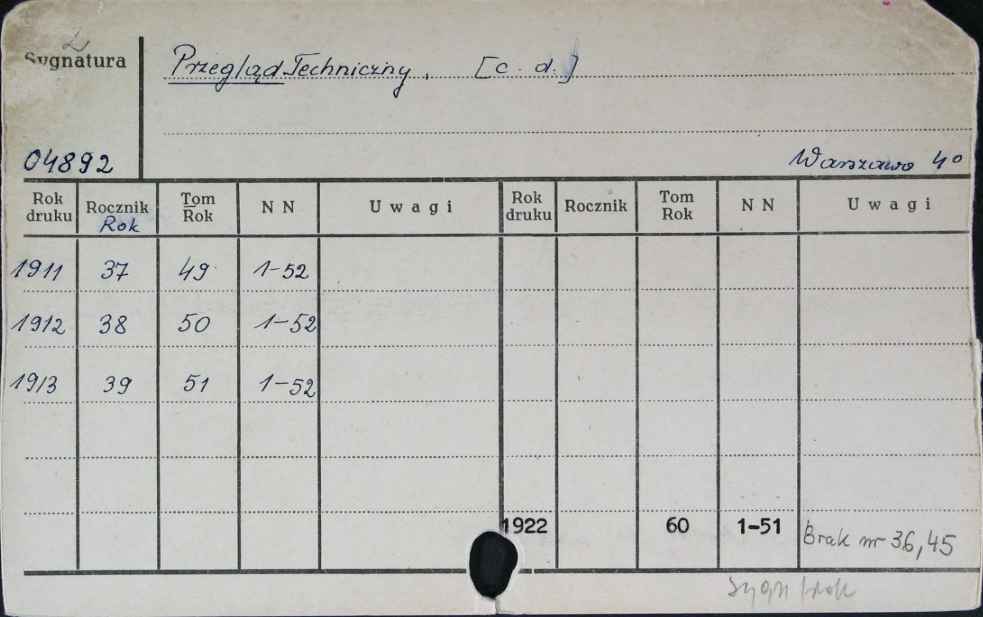 2
Sygnatura
Przegląd Techniczny. [c. d.]
04892
Warszawa 4°
Rok druku Rocznik Rok Tom Rok N N Uwagi Rok druku Rocznik Tom Rok N N Uwagi
1911 37 49 1-52
1912 38 50 1-52
1913 39 51 1-52
1922 60 1-51 Brak nr 36,45